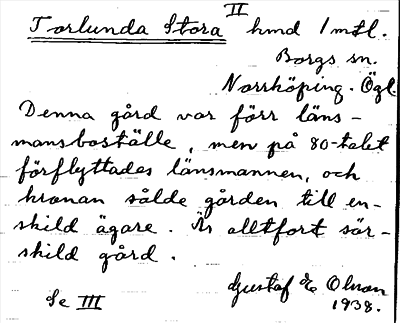 Torlunda Stora II hmd 1 mtl.
Borgs sn.
Norrköping. Ögl.
Denna gård var förr läns-
mansboställe, men på 80-talet
förflyttades länsmannen, och
kronan sålde gården till en-
skild ägare. Är alltfort sär-
skild gård.
Gustaf E Olsson
Se III 1938.